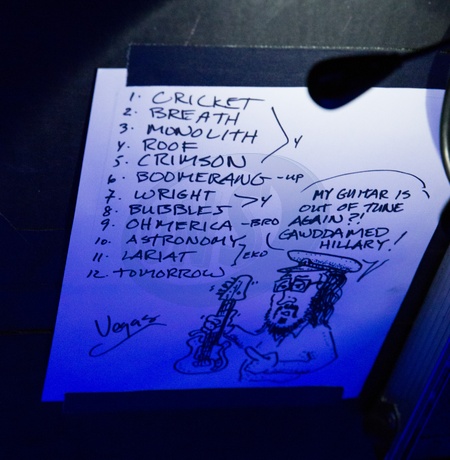 1. CRICKET
2. BREATH
3. MONOLITH
4. ROOF
5. CRIMSON
Y
6. BOOMERANG -UP
7. WRIGHT
8. BUBBLES
Y
9. OHMERICA -BRO
10. ASTRONOMY
11. LARIAT
EKO
12. TOMORROW
MY GUITAR IS
OUT OF TUNE
AGAIN?!
GAWDDAMED
HILLARY!
Vegas